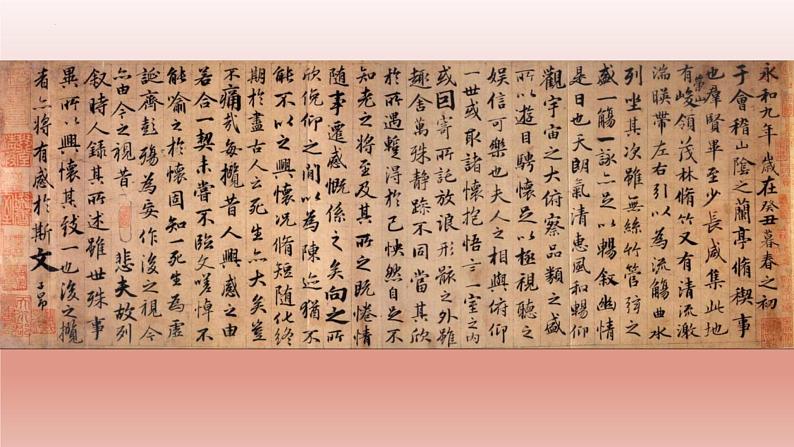 永和九年歲在癸丑暮春之初
于會稽山陰之蘭亭脩稧事
也羣賢畢至少長咸集此地
有崇山峻領茂林脩竹又有清流激
湍暎帶左右引以為流觴曲水
列坐其次雖無絲竹管弦之
盛一觴一詠亦足以暢敘幽情
是日也天朗氣清惠風和暢仰
觀宇宙之大俯察品類之盛
所以遊目騁懷足以極視聽之
娛信可樂也夫人之相與俯仰
一世或取諸懷抱悟言一室之內
或因寄所託放浪形骸之外雖
趣舍萬殊靜躁不同當其欣
於所遇蹔得於己怏然自足不
知老之將至及其所之既惓情
隨事遷感慨係之矣向之所
欣俛仰之間以為陳迹猶不
能不以之興懷況脩短隨化終
期於盡古人云死生亦大矣豈
不痛哉每攬昔人興感之由
若合一契未嘗不臨文嗟悼不
能喻之於懷固知一死生為虛
誕齊彭殤為妄作後之視今
亦由今之視昔 悲夫故列
敘時人錄其所述雖世殊事
異所以興懷其致一也後之攬
者亦將有感於斯文 子昂